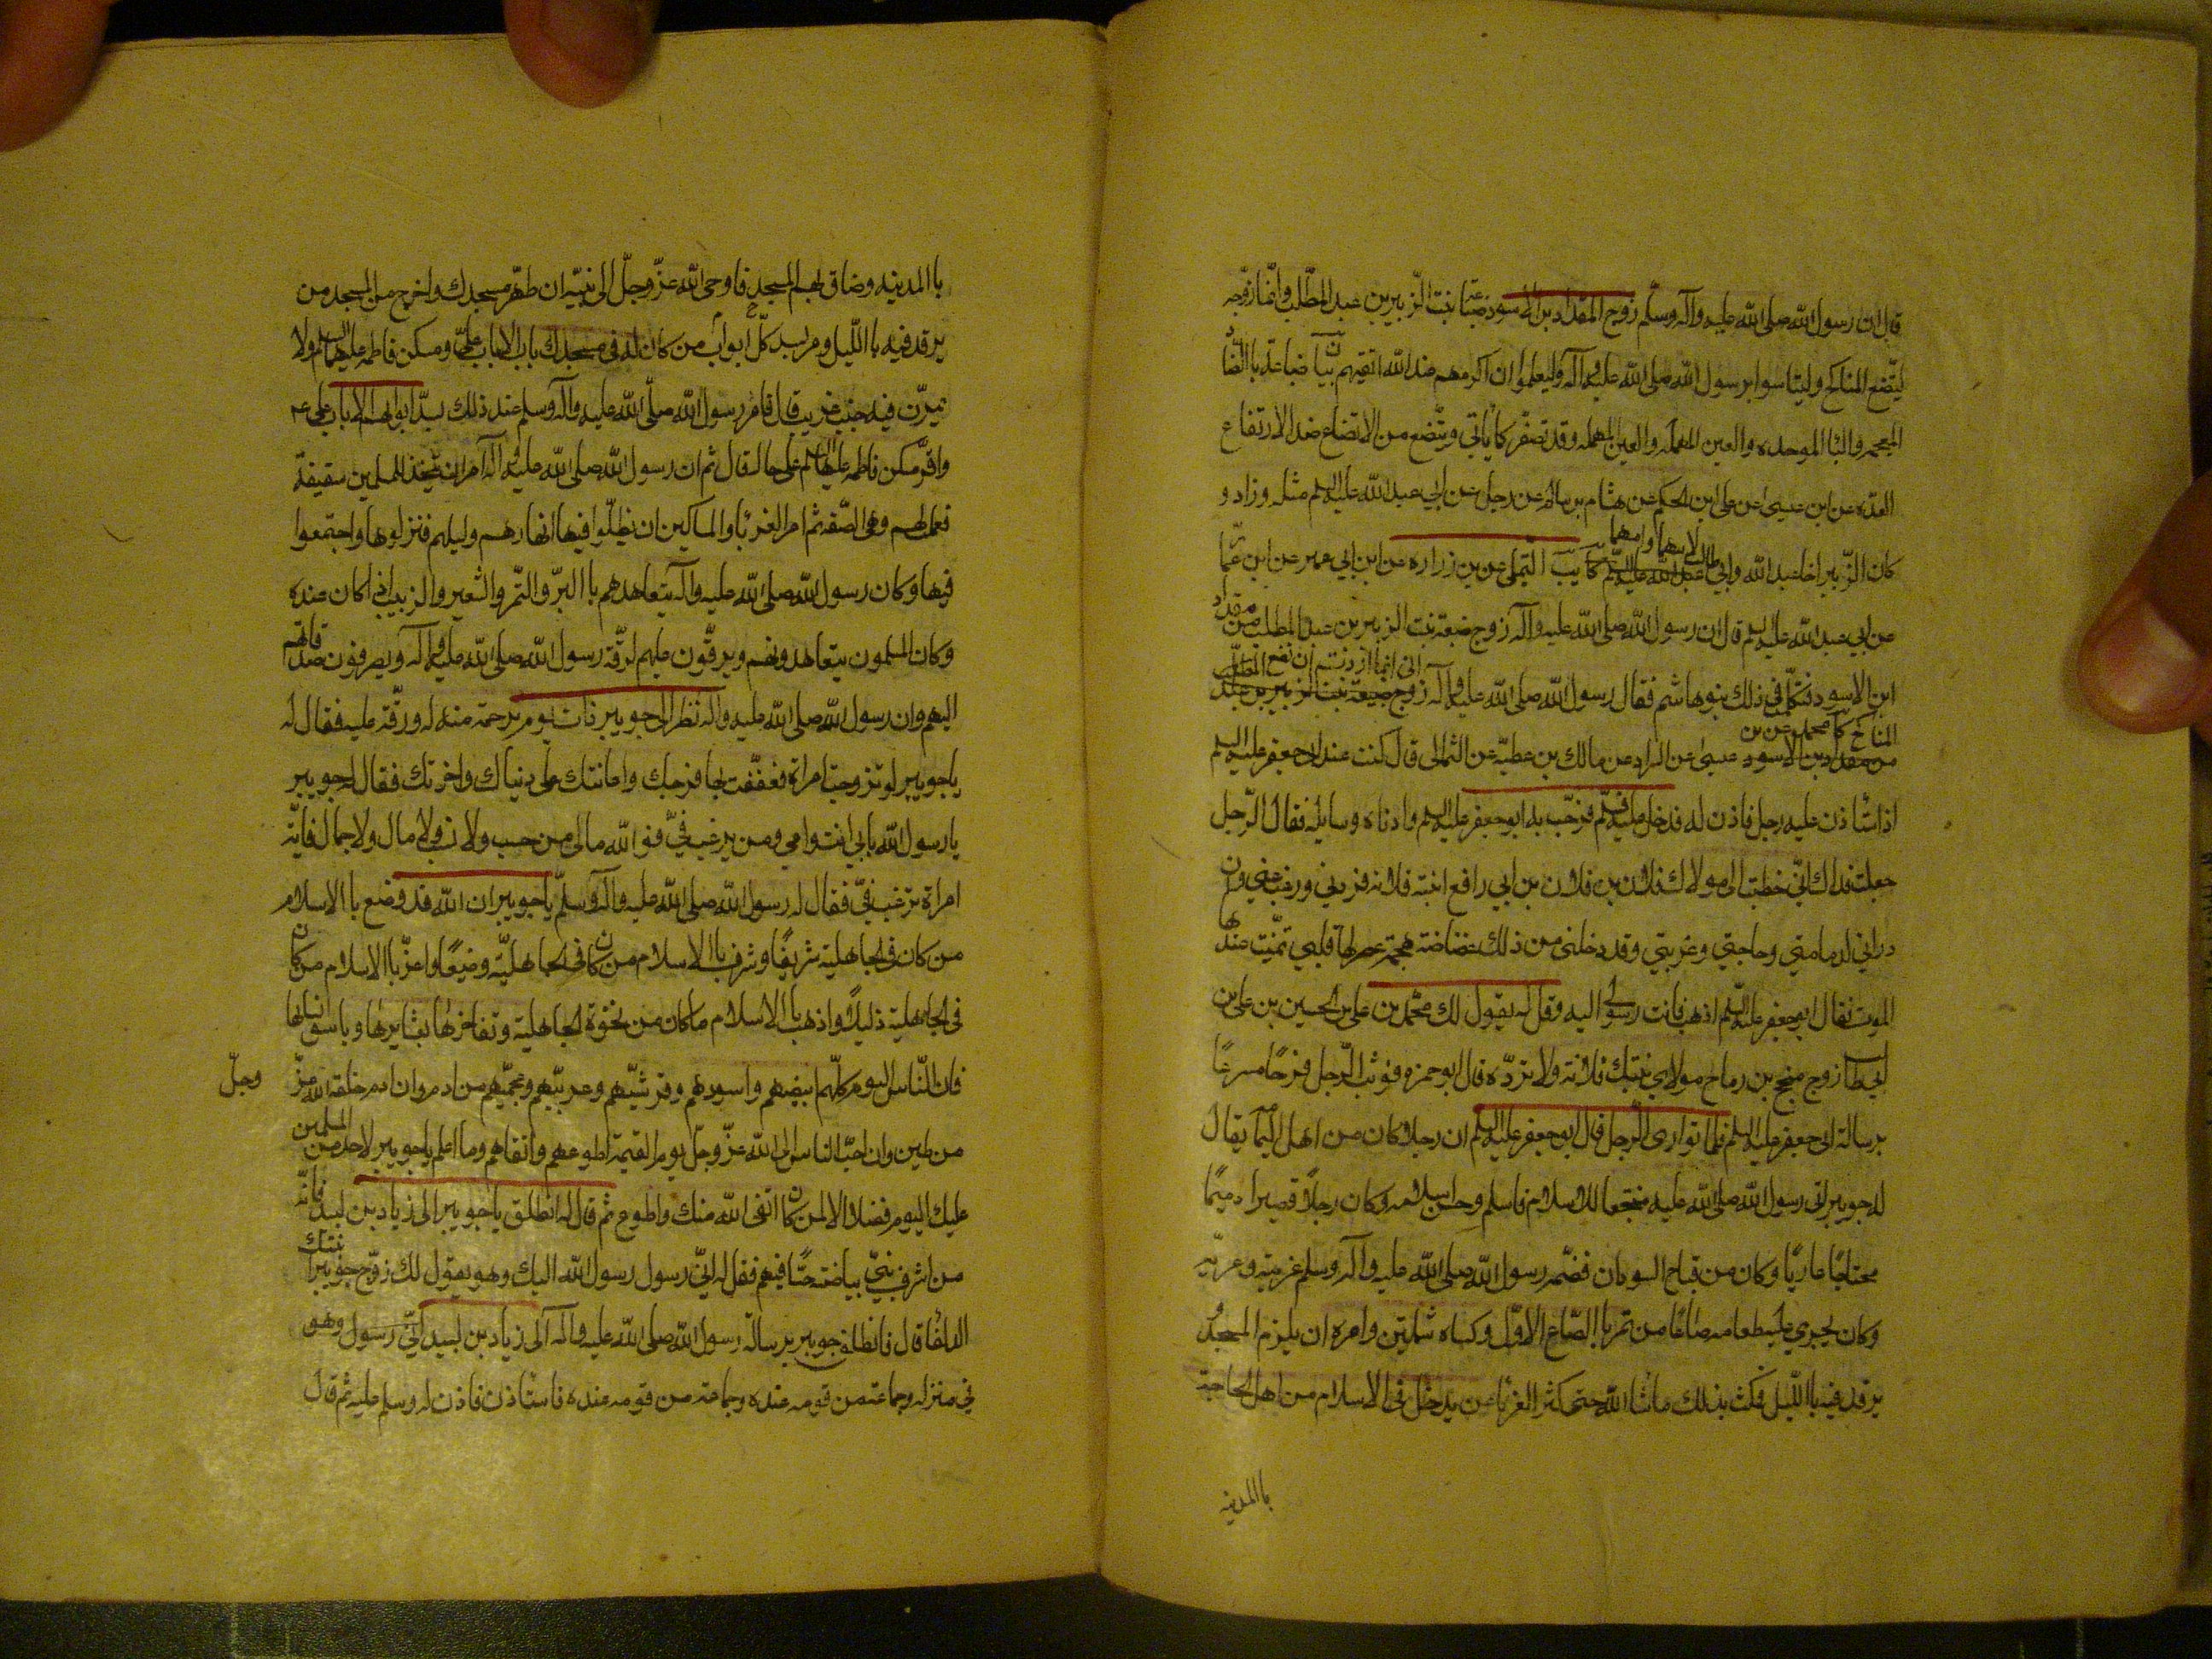 قال ان رسول الله صلى الله عليه وآله وسلم زوج المقداد بن الاسود ضباعة بنت الزبير بن عبد المطلب وانما زوجه
ليتضع المناكح وليتاسوا برسول الله صلى الله عليه وآله وليعلموا ان اكرمهم عند الله اتقيهم بيان ضباعة بالضاد
المعجمه والبا الموحده والعين المهمله وقد تصغر كما ياتى ويتضع من الاتضاع ضد الارتفاع
العده عن ابن عيسى عن على ابن الحكم عن هشام بن سالم عن رجل عن ابي عبد الله عليه السلم مثله وزاد و
كان الزبير اخا عبد الله وابي طالب لابيهما وامهما كا يب التيملى عن بن زراره عن ابن ابي عمير عن ابن
عن ابي عبد الله عليه السلم قال ان رسول الله صلى الله عليه وآله زوج ضبعة بنت الزبير بن عبد المطلب من مقداد
ابن الاسود فتكلم فى ذلك بنو هاشم فقال رسول الله صلى الله عليه وآله انى انما اردت ان تتضع
المناكح كا محمد عن بن عيسى عن السراد عن مالك بن عطيه عن الثمالى قال كنت عند ابى جعفر عليه السلم
اذ استاذن عليه رجل فاذن له فدخل عليه فسلم فرحب به ابو جعفر عليه السلم وادناه وسايله فقال الرجل
جعلت فداك انى خطبت الى مولاك فلان بن ابي رافع ابنته فلانه فردني ورغب عني وان
درانى لدمامتي وحاجتي وغربتي وقد دخلنى من ذلك غضاضة هجمة لها قلبي تمنيت عندها
الموت فقال ابو جعفر عليه السلم اذهب فانت رسولى اليه وقل له يقول لك محمد بن على بن الحسين بن على بن
ابي طا زوج منجح بن رماح مولاى بنتك فلانة ولا ترده قال ابو حمزه فوثب الرجل فرحًا مسرعًا
برسالة ابى جعفر عليه السلم فلما توارى الرجل قال ابو جعفر عليه السلم ان رجلا كان من اهل اليمامة يقال
له جويبر اتى رسول الله صلى الله عليه منتجعا للاسلام فاسلم وحسن اسلامه وكان رجلاً قصيرا دميمًا
محتاجًا عاريًا وكان من قباح السودان فضمه رسول الله صلى الله عليه وآله وسلم لغربته وعريه
وكان يجرى عليه طعامه صاعًا من تمر بالصاع الاول وكساه شملتين وامره ان يلزم المسجد و
يرقد فيه باالليل فمكث بذلك ماشا الله حتى كثر الغربا ممن يدخل فى الاسلام من اهل الحاجة
باالمدينه
باالمدينه وضاق بهم المسجد فاوحى الله عز وجل الى نبيه ان طهر مسجدك واخرج من المسجد من
يرقد فيه باالليل ومر بسد كل ابواب من كان له فى مسجدك باب الا باب على ومسكن فاطمه عليهما السلم ولا
يمرن فيه جنب غريب قال فامر رسول الله صلى الله عليه وآله وسلم عند ذلك بسد ابوابهم الا باب على ع
واقر مسكن فاطمه عليها السلم على حاله قال ثم ان رسول الله صلى الله عليه وآله امر ان يتخذ للمسلمين سقيفة
فعملت لهم وهى الصفه ثم امر الغربا والمساكين ان يظلوا فيها نهارهم وليلهم فنزلوها واجتمعوا
فيها وكان رسول الله صلى الله عليه وآله يتعاهدهم باالبر والتمر والشعير والزبيب اذا كان عنده
وكان المسلمون يتعاهدونهم ويرقون عليهم لرقة رسول الله صلى الله عليه وآله ويصرفون صدقاتهم
اليهم وان رسول الله صلى الله عليه وآله نظر الى جويبر ذات يوم برحمة منه له ورقة عليه فقال له
ياجويبر لو تزوجت امراة فعففت بها فرجك واعانتك على دنياك واخرتك فقال له جويبر
يارسول الله بابي انت وامي ومن يرغب فيّ فو الله مالى من حسب ولا نسب ولا مال ولا جمال فاية
امراة ترغب فيّ فقال له رسول الله صلى الله عليه وآله وسلم ياجويبر ان الله قد وضع باالاسلام
من كان فى الجاهلية شريفًا وشرف باالاسلام من كان فى الجاهلية وضيعًا واعز باالاسلام من كان
فى الجاهلية ذليلاً واذهب باالاسلام ماكان من نخوة الجاهلية وتفاخرها بعشايرها وباسق انسابها
فان الناس اليوم كلهم ابيضهم واسودهم وقرشيهم وعربيهم وعجميهم من ادم وان ادم خلقه الله عز وجلّ
من طين وان احب الناس الى الله عز وجل يوم القيمة اطوعهم واتقاهم وما اعلم ياجويبر لاحد من المسلمين
عليك اليوم فضلا الا لمن كان اتقى لله منك واطوع ثم قال له انطلق ياجويبر الى زياد بن لبيد فانه
من اشرف بني بياضة حسبًا فيهم فقل له انى رسول رسول الله اليك وهو يقول لك زوج جويبرا بنتك
الدلفا قال فانطلق جويبر برسالة رسول الله صلى الله عليه وآله الى زياد بن لبيد وهو
في منزله وجماعة من قومه عنده فاستاذن فاذن له وسلم عليه ثم قال